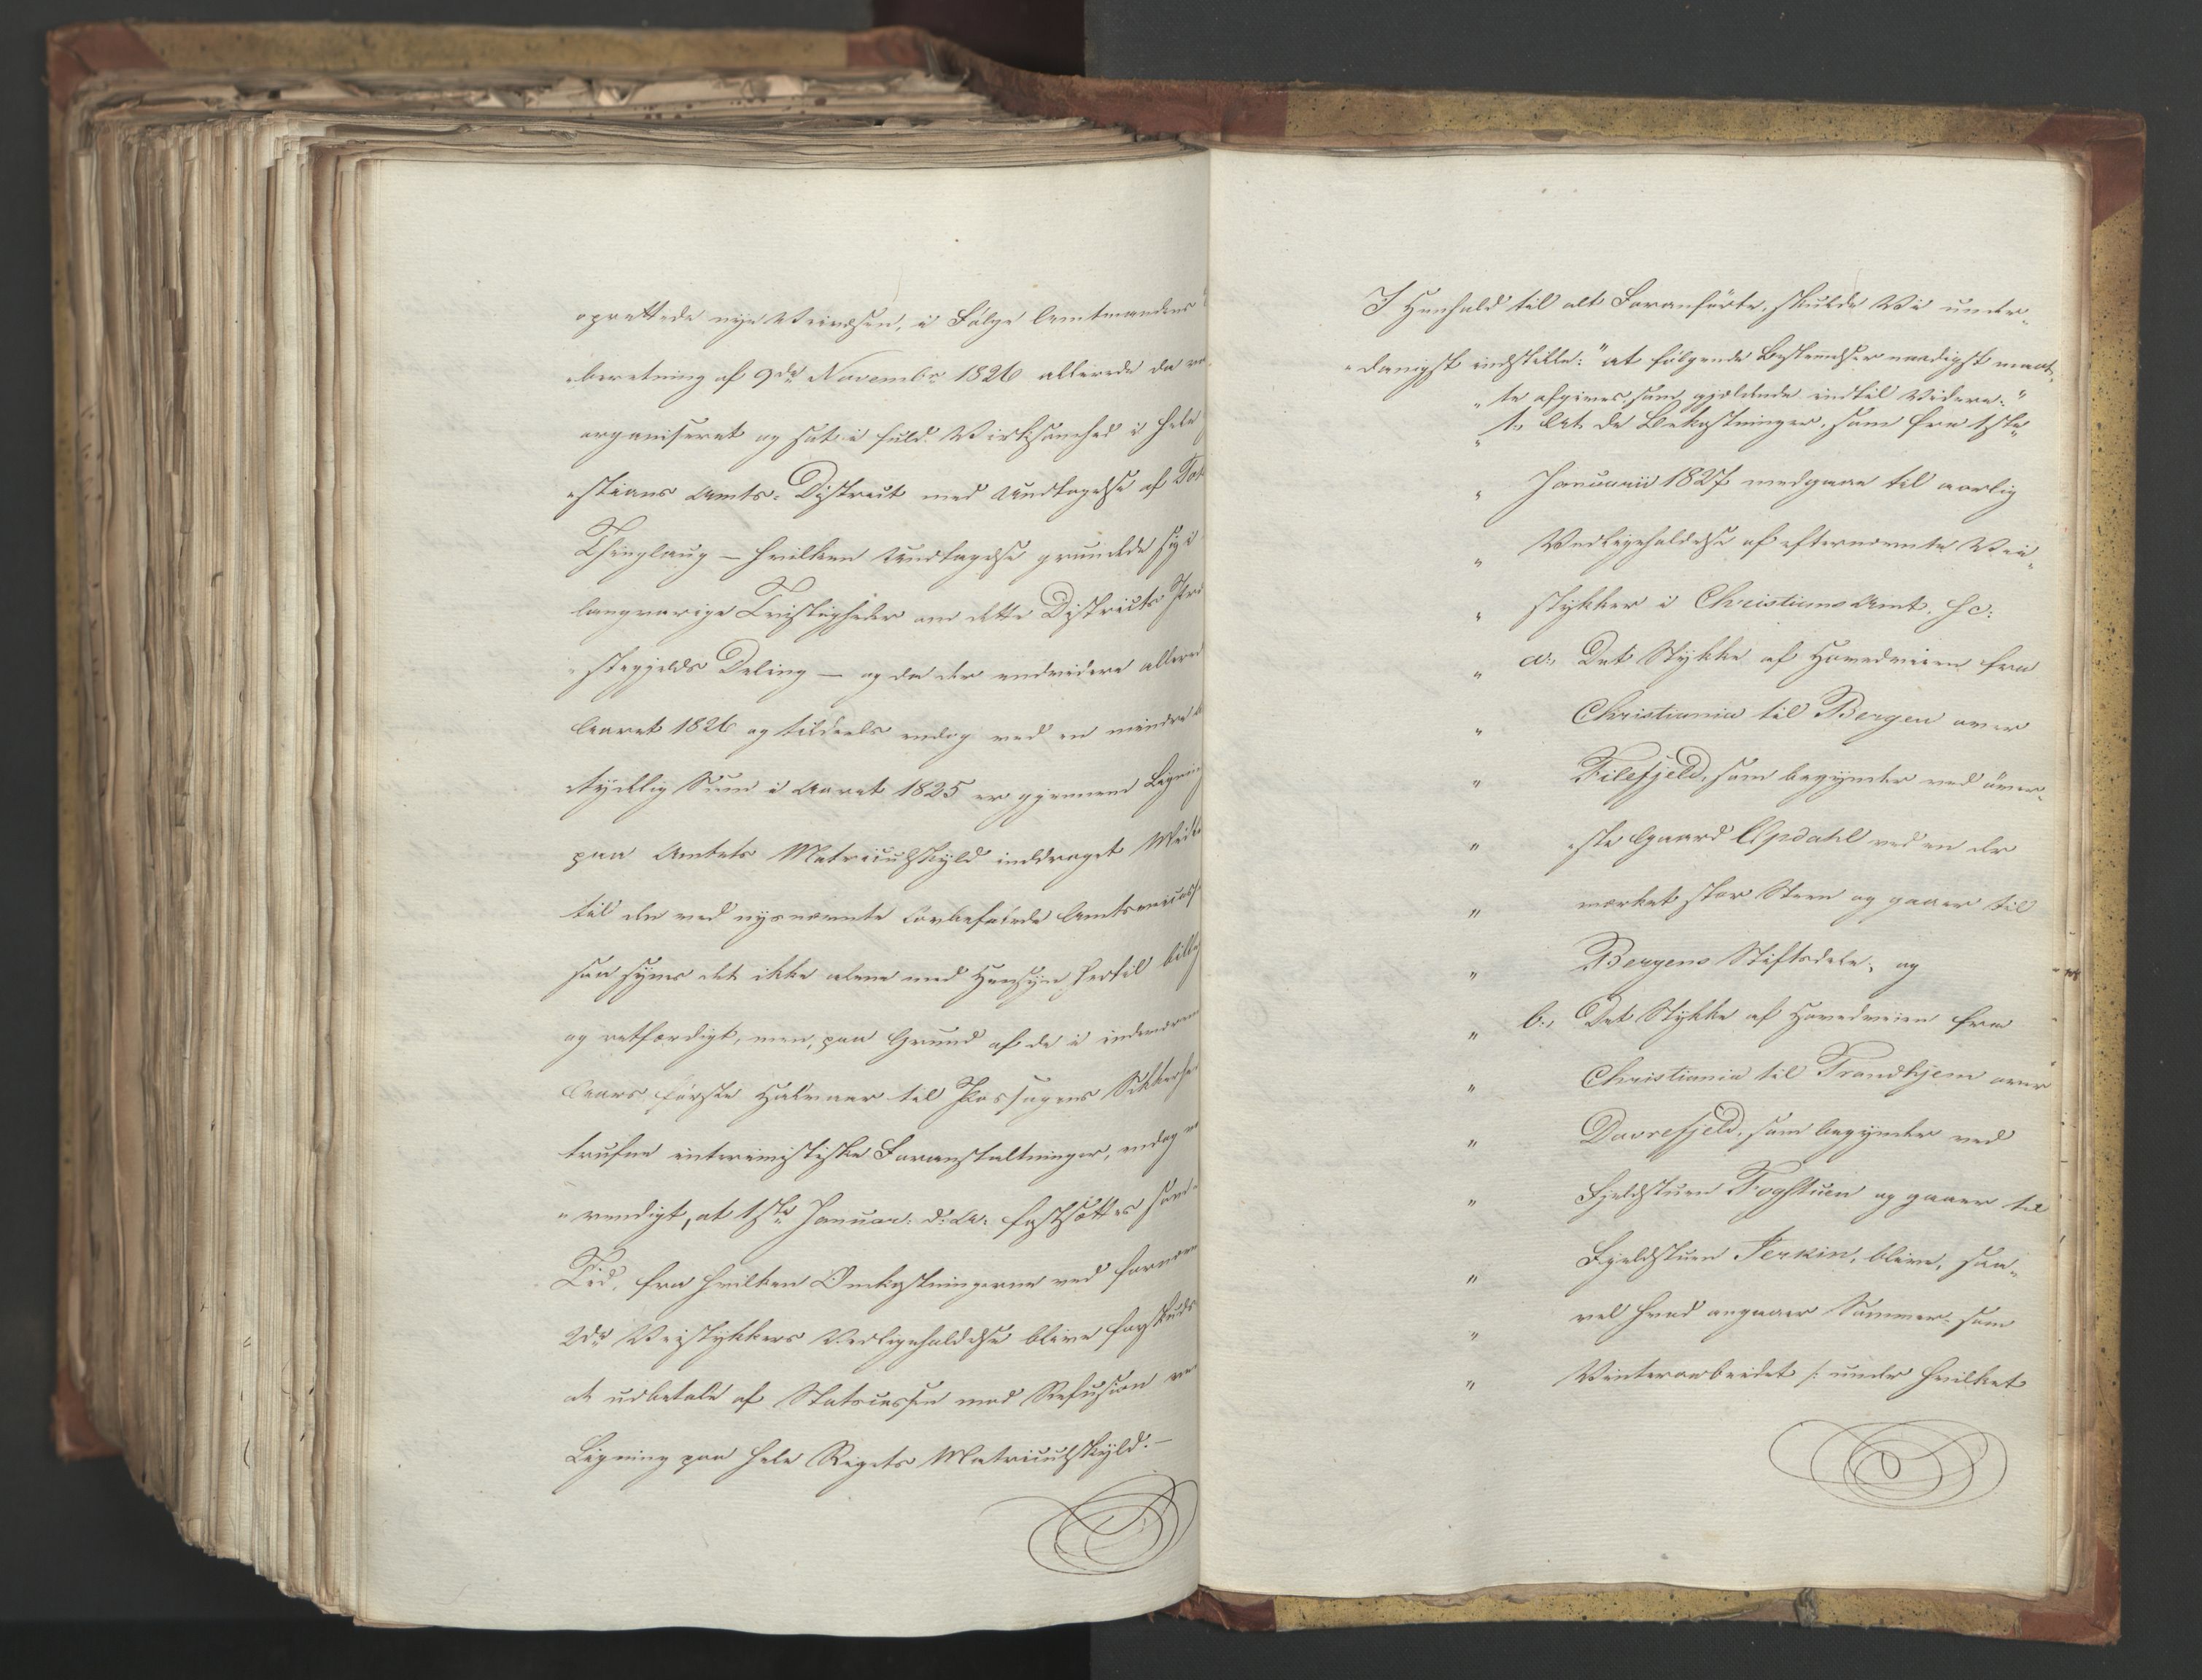 oprettede nye Veivæsen, i Følge Amtmandens
„beretning af 9de Novembr 1826 allerede da
organiseret og sat i fuld Virksomhed i hele
„stians Amts-District med Undtagelse af
Thinglaug – hvilken Undtagelse grundede sig i
langvarige Tvistigheder om dette Districts
„stegjelds Deling – og da der endvidere
Aaret 1826 og tildeels endog med en mindre
tydelig Sum i Aaret 1825 er gjennem
paa Amtets Matriculskyld inddraget
til den ved nysnævnte Lov befalede
saa synes det ikke alene med Hensyn hertil
og retfærdigt, men, paa Grund af de i
Aars første Halvaar til Passagens
trufne interimistiske Foranstaltninger, endog
„vendigt, at 1ste Januar d: A: fastsættes som
Tid, fra hvilken Omkostningerne ved
2de Veistykkers Vedligeholdelse blive
at udbetale af Statscassen mod Refusion
Ligning paa hele Rigets Matriculskyld.–
I Henhold til alt Foranførte, skulde Vi under-
„danigst indstille: "at følgende Bestemmelser naadigst maat-
„te afgives, som gjeldende indtil Videre:"
„ 1., At de Bekostninger, som fra 1ste
„ Januarii 1827 medgaae til aarlig
„ Vedligeholdelse af efternævnte Vei-
„ stykker i Christians Amt, sc:
„ a., Det Stykke af Hovedveien fra
„ Christiania til Bergen over
„ Filefjeld, som begynder ved øver-
„ ste Gaard Opdahl ved en der
„ mærket stor Steen og gaaer til
„ Bergens Stiftsdele, og
„ b., Det Stykke af Hovedveien fra
„ Christiania til Trondhjem over
„ Dovrefjeld, som begynder ved
„ Fjeldstuen Fogstuen og gaaer til
„ Fjeldstuen Jerkin, blive, saa-
„ vel hvad angaaer Sommer- som
„ Vinterarbeidet /: under hvilket